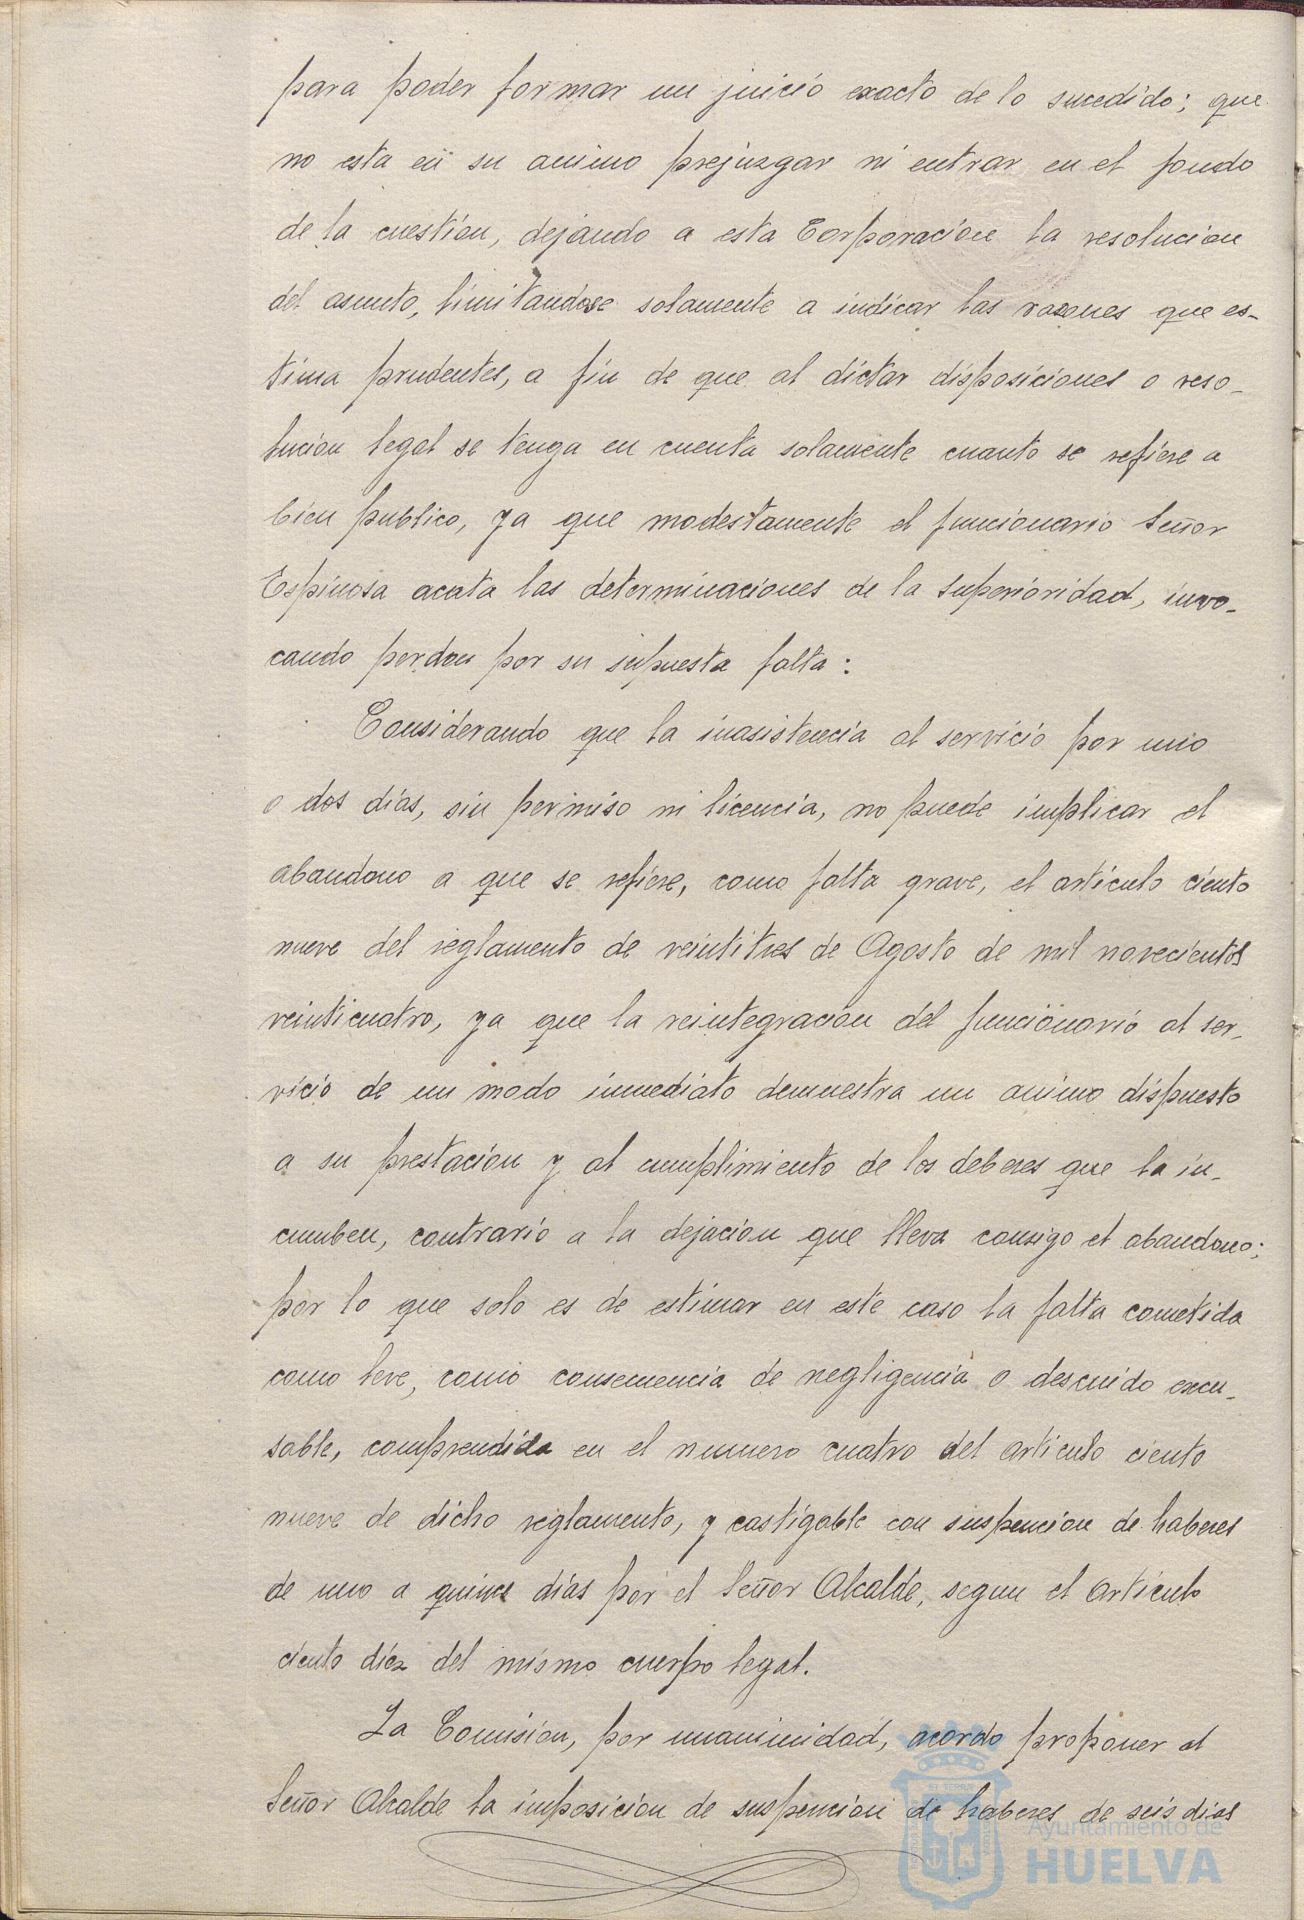 para poder formar un juicio exacto de lo sucedido; que
no esta en su animo prejuzgar ni entrar en el fondo
de la cuestion, dejando a esta Corporacion la resolucion
del asunto, limitandose solamente a indicar las razones que es-
tima prudentes, a fin de que al dictar disposiciones o reso-
lucion legal se tenga en cuenta solamente cuanto se refiere a
bien publico, ya que modestamente el funcionario Señor
Espinosa acata las determinaciones de la Superioridad, invo-
cando perdon por su supuesta falta:
Considerando que la inasistencia al servicio por uno
o dos dias, sin permiso ni licencia, no puede implicar el
abandono a que se refiere, como falta grave, el articulo ciento
nueve del reglamento de veintitres de Agosto de mil novecientos
veinticuatro, ya que la reintegracion del funcionario al ser-
vicio de un modo inmediato demuestra un animo dispuesto
a su prestacion y al cumplimiento de los deberes que la in-
cumben, contrario a la dejacion que lleva consigo el abandono;
por lo que solo es de estimar en este caso la falta cometida
como leve, como consecuencia de negligencia o descuido excu-
sable, comprendida en el numero cuatro del articulo ciento
nueve de dicho reglamento, y castigable con suspencion de haberes
de uno a quince dias por el Señor Alcalde, segun el articulo
ciento diez del mismo cuerpo legal.
La Comision, por unanimidad, acordo proponer al
Señor Alcalde la imposicion de suspencion de haberes de seis dias
Ayuntamiento de
HUELVA